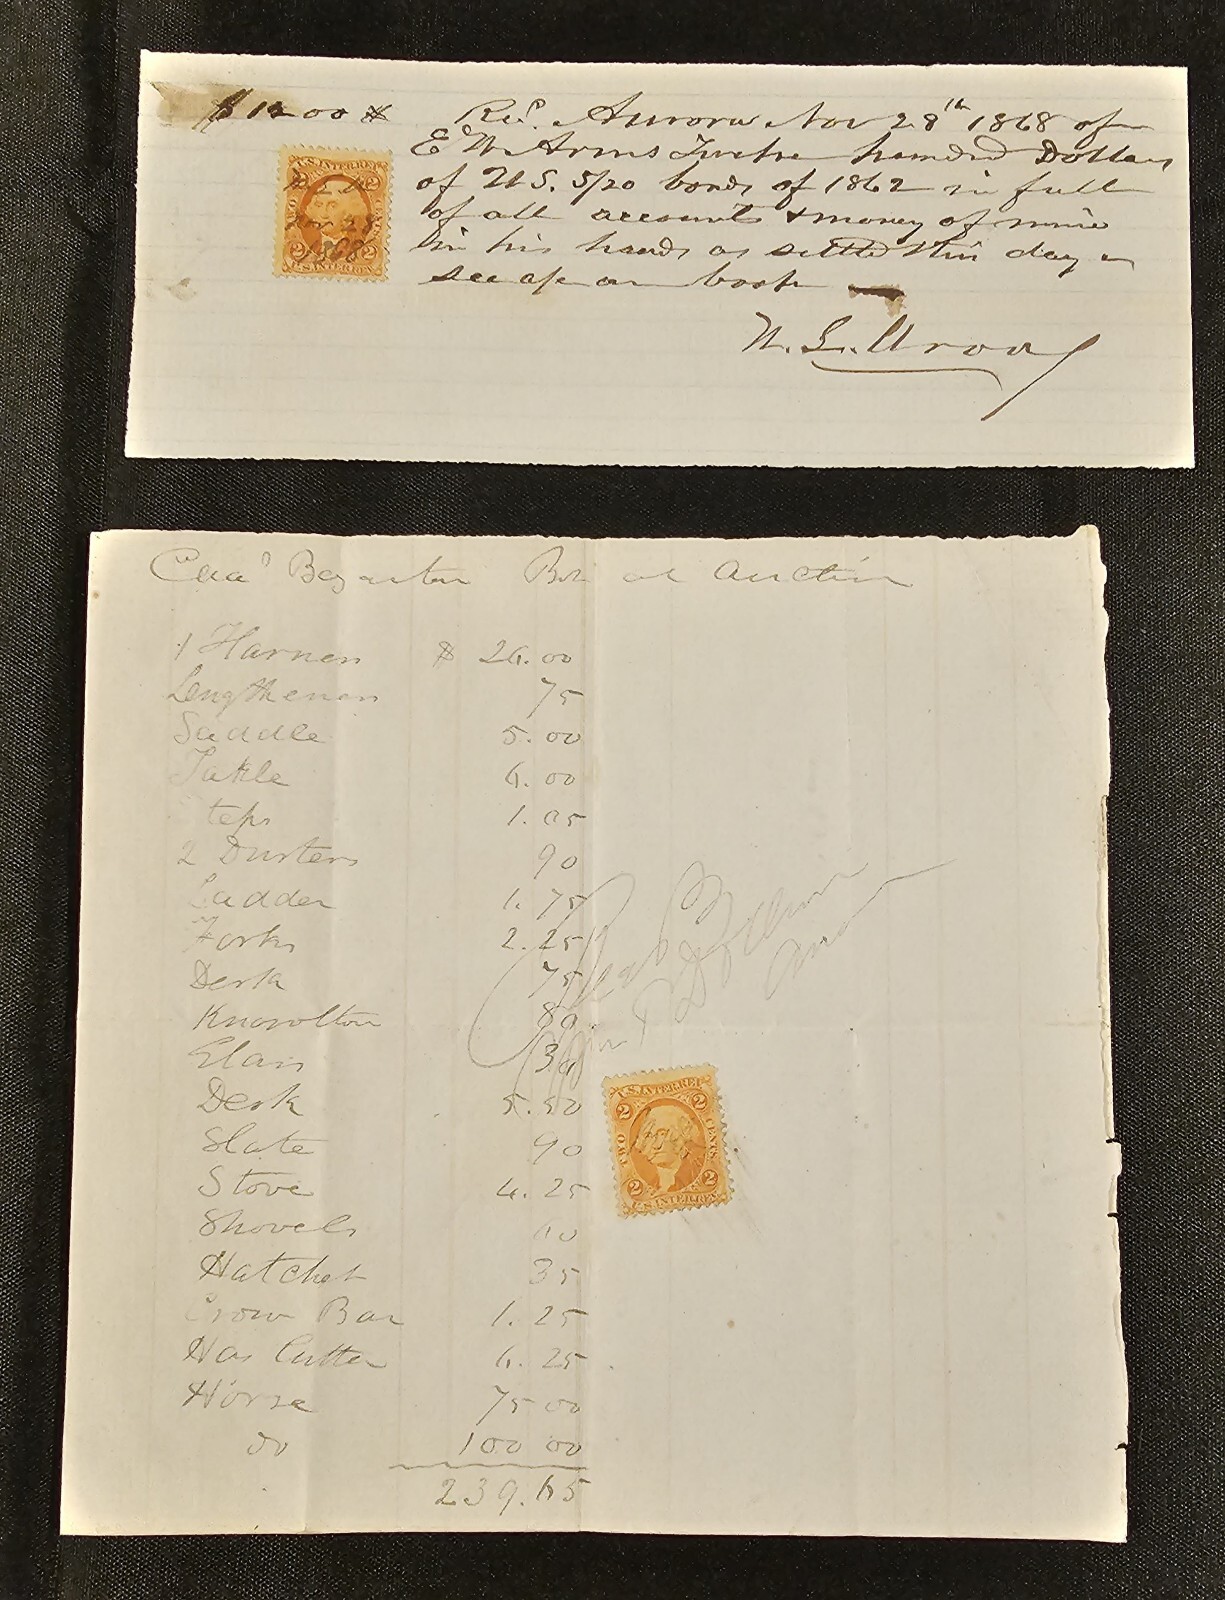 $1200 00
Recd. Aurora Nov 28th 1868 of
E W Arms Twelve hundred Dollars
of U S. 5/20 bonds of 1862 in full
of all accounts & money of mine
in his hands as settled this day
see on book
U.S. INTER. REV.
2 2
TWO CENTS
Nov 28
1868
2 2
U.S. INTER. REV.
Chas Boynton Bot at Auction
1 Harness $ 26.00
75
Saddle 5.00
Takle 6.00
teps 1.05
2 Dusters 90
Ladder 1.75
Forks 2.25
Desk 75
Knowolton 80
Glass 30
Desk 5.50
Slate 90
Stove 4.25
Shovels 10
Hatchet 35
Crow Bar 1.25
Hay Cutter 6.25
Horse 75 00
do 100 00
239.65
U.S. INTER. REV.
2 2
TWO CENTS
2 2
U.S. INTER. REV.